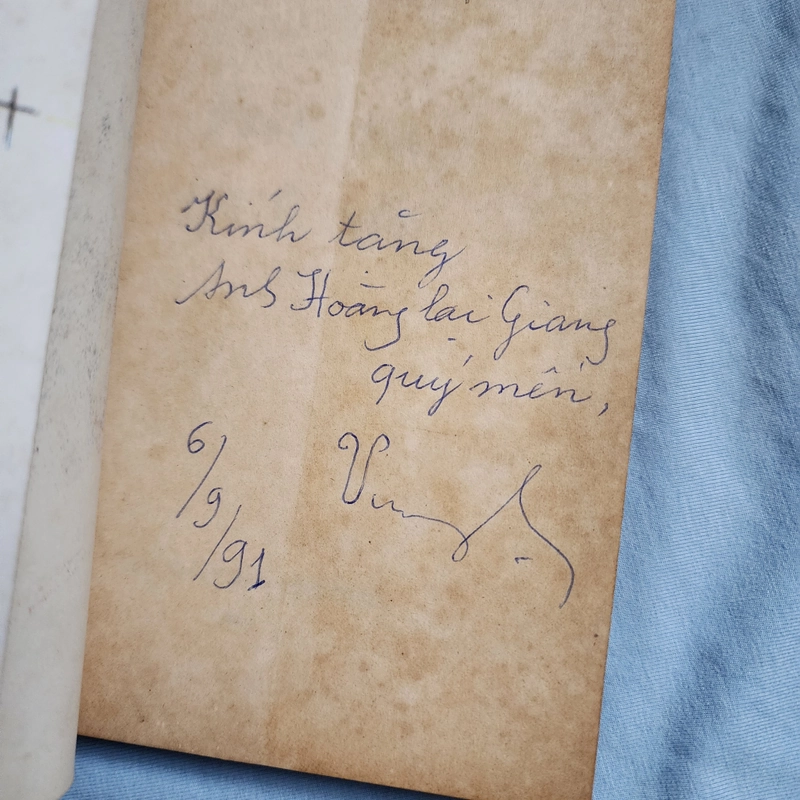 Kính tặng
Anh Hoàng lại Giang
quý mến,
6/9/91